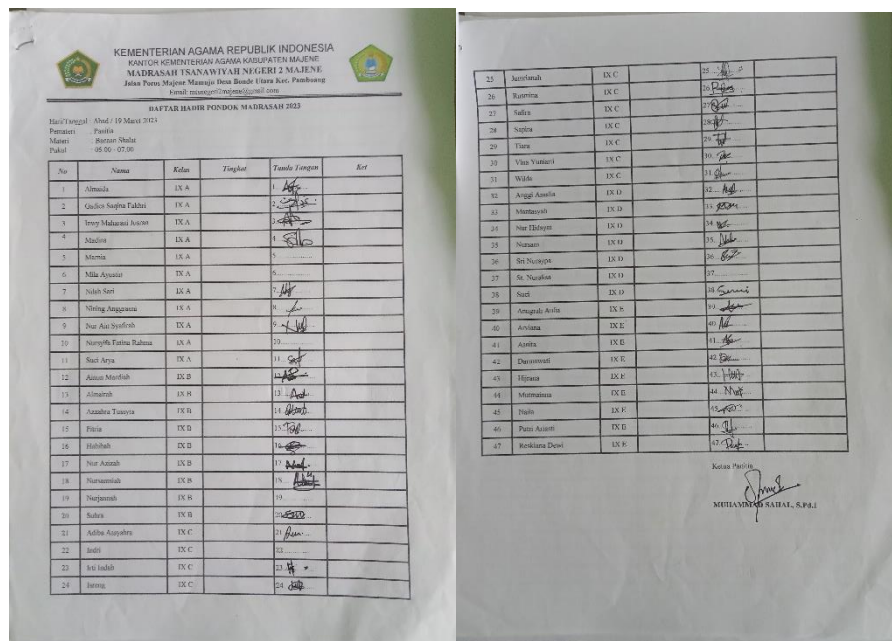 KEMENTERIAN AGAMA REPUBLIK INDONESIA
KANTOR KEMENTERIAN AGAMA KABUPATEN MAJENE
MADRASAH TSANAWIYAH NEGERI 2 MAJENE
Jalan Poros Majene Mamuju Desa Bonde Utara Kec. Pamboang
DAFTAR HADIR PONDOK MADRASAH 2023
Hari/Tanggal : Ahad / 19 Maret 2023
Pemateri : Panitia
Materi : Bacaan Shalat
Pukul : 05.00 - 07.00
No Nama Kelas Tingkat Tanda Tangan Ket
1 Almaida IX A 1.
2 Gadisa Saqina Fakhri IX A 2.
3 Irmy Maharani IX A 3.
4 Madina IX A 4.
5 IX A 5.
6 Mila Ayustir IX A 6.
7 Nilah Sari IX A 7.
8 Nining Anggraeni IX A 8.
9 Nur Ain Syafirah IX A 9.
10 Fatina Rahma IX A 10.
11 Suci Arya IX A 11.
12 Ainun Mardiah IX B 12.
13 Almairah IX B 13.
14 Azzahra Tusayra IX B 14.
15 Fitria IX B 15.
16 Habibah IX B 16.
17 Nur Azizah IX B 17.
18 Nursamiah IX B 18.
19 Nurjannah IX B 19.
20 Suhra IX B 20.
21 Adiba Assyahra IX C 21.
22 Indri IX C 22.
23 Irti Indah IX C 23.
24 IX C 24.
25 Jumrianah IX C 25.
26 Rusmina IX C 26.
27 Safira IX C 27.
28 Sapira IX C 28.
29 Tiara IX C 29.
30 Vina Yuniarti IX C 30.
31 Wilda IX C 31.
32 Anggi Amelia IX D 32.
33 Muntasyah IX D 33.
34 Nur Hidaya IX D 34.
35 Nuraeni IX D 35.
36 Sri IX D 36.
37 St. Nuralisa IX D 37.
38 Suci IX D 38.
39 Anugrah Aulia IX E 39.
40 Arviana IX E 40.
41 Asnita IX E 41.
42 Darmawati IX E 42.
43 Hijrana IX E 43.
44 Mutmainna IX E 44.
45 Naila IX E 45.
46 Putri Ananti IX E 46.
47 Reskiana Dewi IX E 47.
Ketua Panitia
MUHAMMAD SAHAL, S.Pd.I